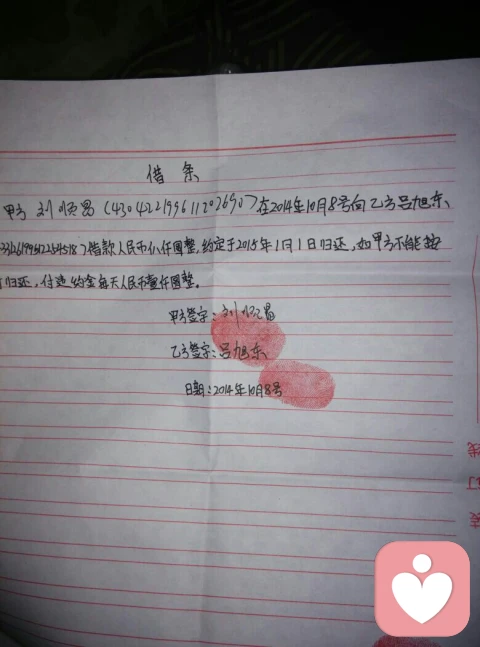 借条
甲方 刘顺昌 (430422199611202690) 在2014年10月8号向乙方吕旭东、
借款人民币仟圆整,约定于2015年1月1日归还,如甲方不能按
归还,付违约金每天人民币壹仟圆整。
甲方签字:刘顺昌
乙方签字:吕旭东
日期:2014年10月8号
线
订
装